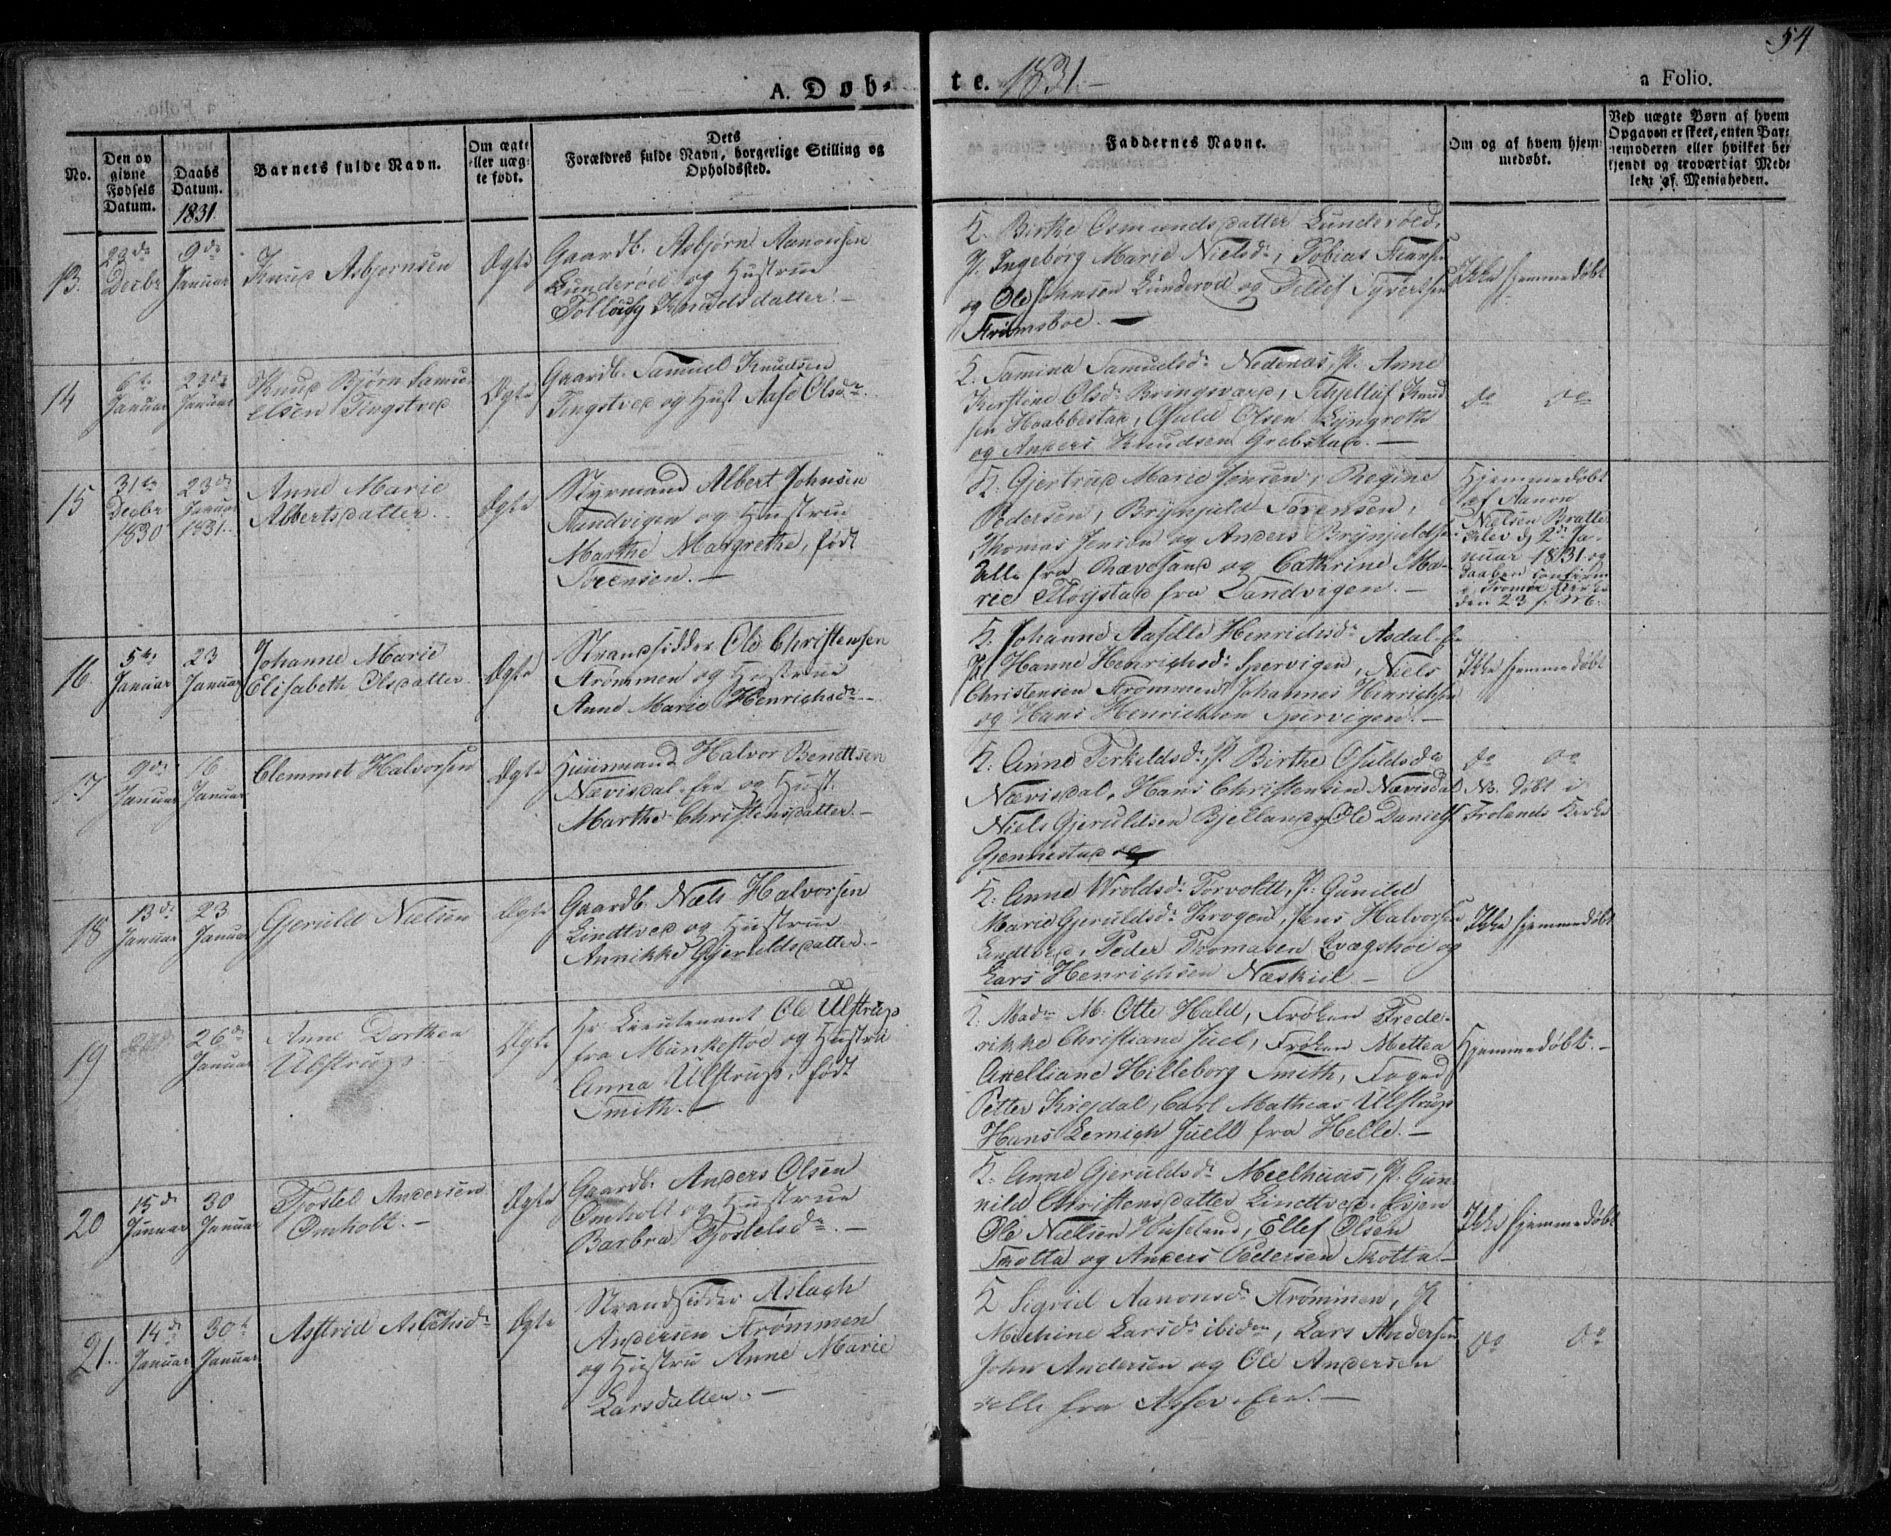 54
A. Døb-
te. 1831.-
a Folio.
No.
Den op
givne
Fødsels
Datum.
Daabs
Datum.
1831.
Barnets fulde Navn.
Om ægte
eller uæg-
te født.
Dets
Forældres fulde Navn, borgerlige Stilling og
Opholdssted.
Faddernes Navne.
Om og af hvem hjem-
medøbt.
Ved uægte Børn af hvem
Opgaven er skeet, enten Bar-
nemoderen eller hvilket be-
kjendt og troværdigt Med-
lem af Menigheden.
13.
Decbr
9de
Januar
Knud Asbjørnsen
Ægte
Gaardb. Asbjørn Aanonsen
Lunderød og Hustrue
Tolloug Knudsdatter.-
K. Birthe Osmundsdatter Lunderød,
P. Ingebørg Marie Nielsd., Tobias
og Ole Johnsen Lunderød og Syvertsen
Ikke hjemmedøbt
14
6te
Januar
23de
Januar
Knud Bjørn Samu-
elsen Tingstved
Ægte
Gaardb. Samuel Knudsen
Tingstved og Hust. Aase Olsdr.
K. Tamina Samuelsdr. Nedenæs, P. Anne
Kirstine Olsdr. Bringsværd, Knud-
sen Haabbestad, Osuld Olsen Lyngroth
og Anders Knudsen Grebstad.-
do do
15
31te
Decbr
1830
23de
Januar
1831.
Anne Marie
Albertsdatter.
Ægte
Styrmand Albert Johnsen
Sandvigen og Hustru
Marthe Margrethe, født
Sørensen.-
K. Gjertrud Marie Jensen, Regine
Pedersen, Brynjuld Sørensen,
Thomas Jensen og Anders Brynjuldsen
alle fra Rævesand og Cathrine Ma-
rie Fløystad fra Sandvigen.-
Hjemmedøbt
af Aanon
Nielsen Bratte-
klev d. 2de Ja-
nuar 1831 og
Daaben confirm.
i Tromøe Kirke
den 23 s. M.
16.
5te
Januar
23
Januar
Johanne Marie
Elisabeth Olsdatter
Ægte
Strandsidder Ole Christensen
Strømmen og Hustrue
Anne Marie Henrichsdr.-
K. Johanne Henrichsdr. Asdal
P. Hanne Henrichsdr. Spervigen, Niels
Christensen Strømmen, Johannes Henrichsen
og Hans Henrichsen Spervigen.-
Ikke hjemmedøbt
17
9de
Januar
16
Januar
Clemmet Halvorsen
Ægte
Huusmand Halvor Bentsen
Nævisdal og Hust.
Marthe Christensdatter.-
K. Anne Terkelsdr., P. Birthe Osuldsdr
Nævisdal, Hans Christensen Nævisdal
Niels Gjeruldsen Bjelland og Ole Daniels.
Gjennestad
do do
NB. døbt i
Frolands Kirke
18
13de
Januar
23
Januar
Gjeruld Nielsen
Ægte
Gaardb. Niels Halvorsen
Lindtved og Hustrue
Annikke Gjeruldsdatter.-
K. Anne Wroldsdr. Torvoldt, P. Gunild
Marie Gjeruldsdr. Krogen, Jens Halvorsen
Lindtved, Peder Thomasen og
Lars Henrichsen Næskiil.-
Ikke hjemmedøbt
19
26de
Januar
Anne Dorthea
Ulstrup.
Ægte
Hr. Lieutenant Ole Ulstrup
fra Munkestød og Hustru
Anna Ulstrup, født
Smith.-
K. Madm M. Otte Hald, Frøken Frede-
rikke Christiane Juel, Frøken Mettea
Axelliane Hilleborg Smith, Foged
Petter Carl Mathias Ulstrup
Hans Juell fra Helle.-
Hjemmedøbt.-
20
15de
Januar
30
Januar
Tjøstel Andersen
Omholt.-
Ægte
Gaardb. Anders Olsen
Omholt og Hustrue
Barbra Tjøstelsdr.-
K. Anne Gjeruldsdr. Meelhuus, P. Gun-
nild Christensdatter Lindtved
Ole Nielsen Huseland, Ellef Olsen
Skotta og Anders Pedersen Skotta.-
Ikke hjemmedøbt
21.
14de
Januar
30te
Januar
Astrid Aslachsdr
Ægte
Strandsidder Aslach
Andersen Strømmen
og Hustru Anne Marie
Larsdatter.-
K. Sigrid Aanonsdr. Strømmen, P.
Larsdr ibidm, Lars Andersen
John Andersen og Ole Andersen
alle fra
do do